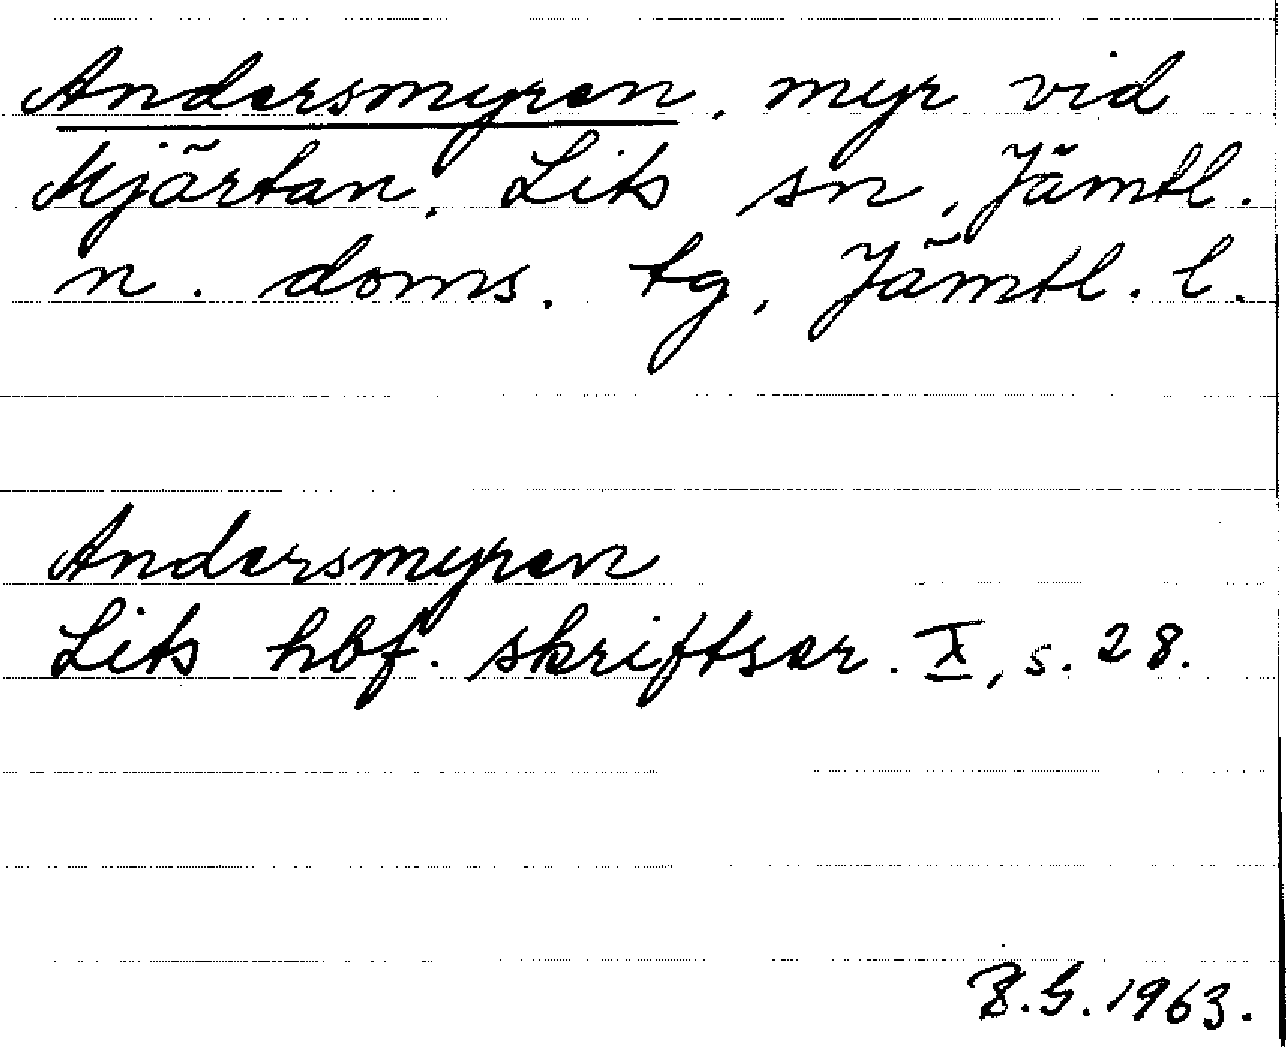 Andersmyren, myr vid
Mjärtan, Lits sn, Jämtl.
n. doms. tg, Jämtl. l.
Andersmyren
Lits hbf. skriftser. X, s. 28.
B.G. 1963.